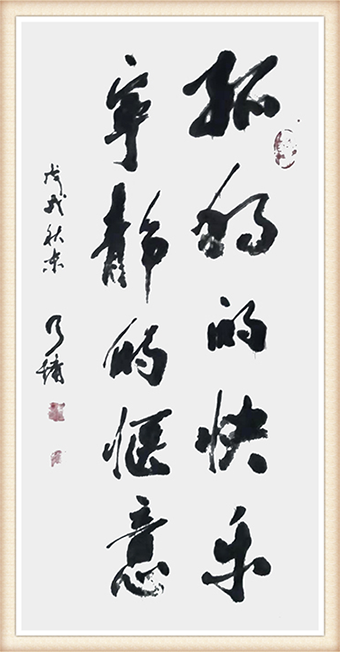 孤独的快乐
宁静的惬意
戊戌秋末
乃墉